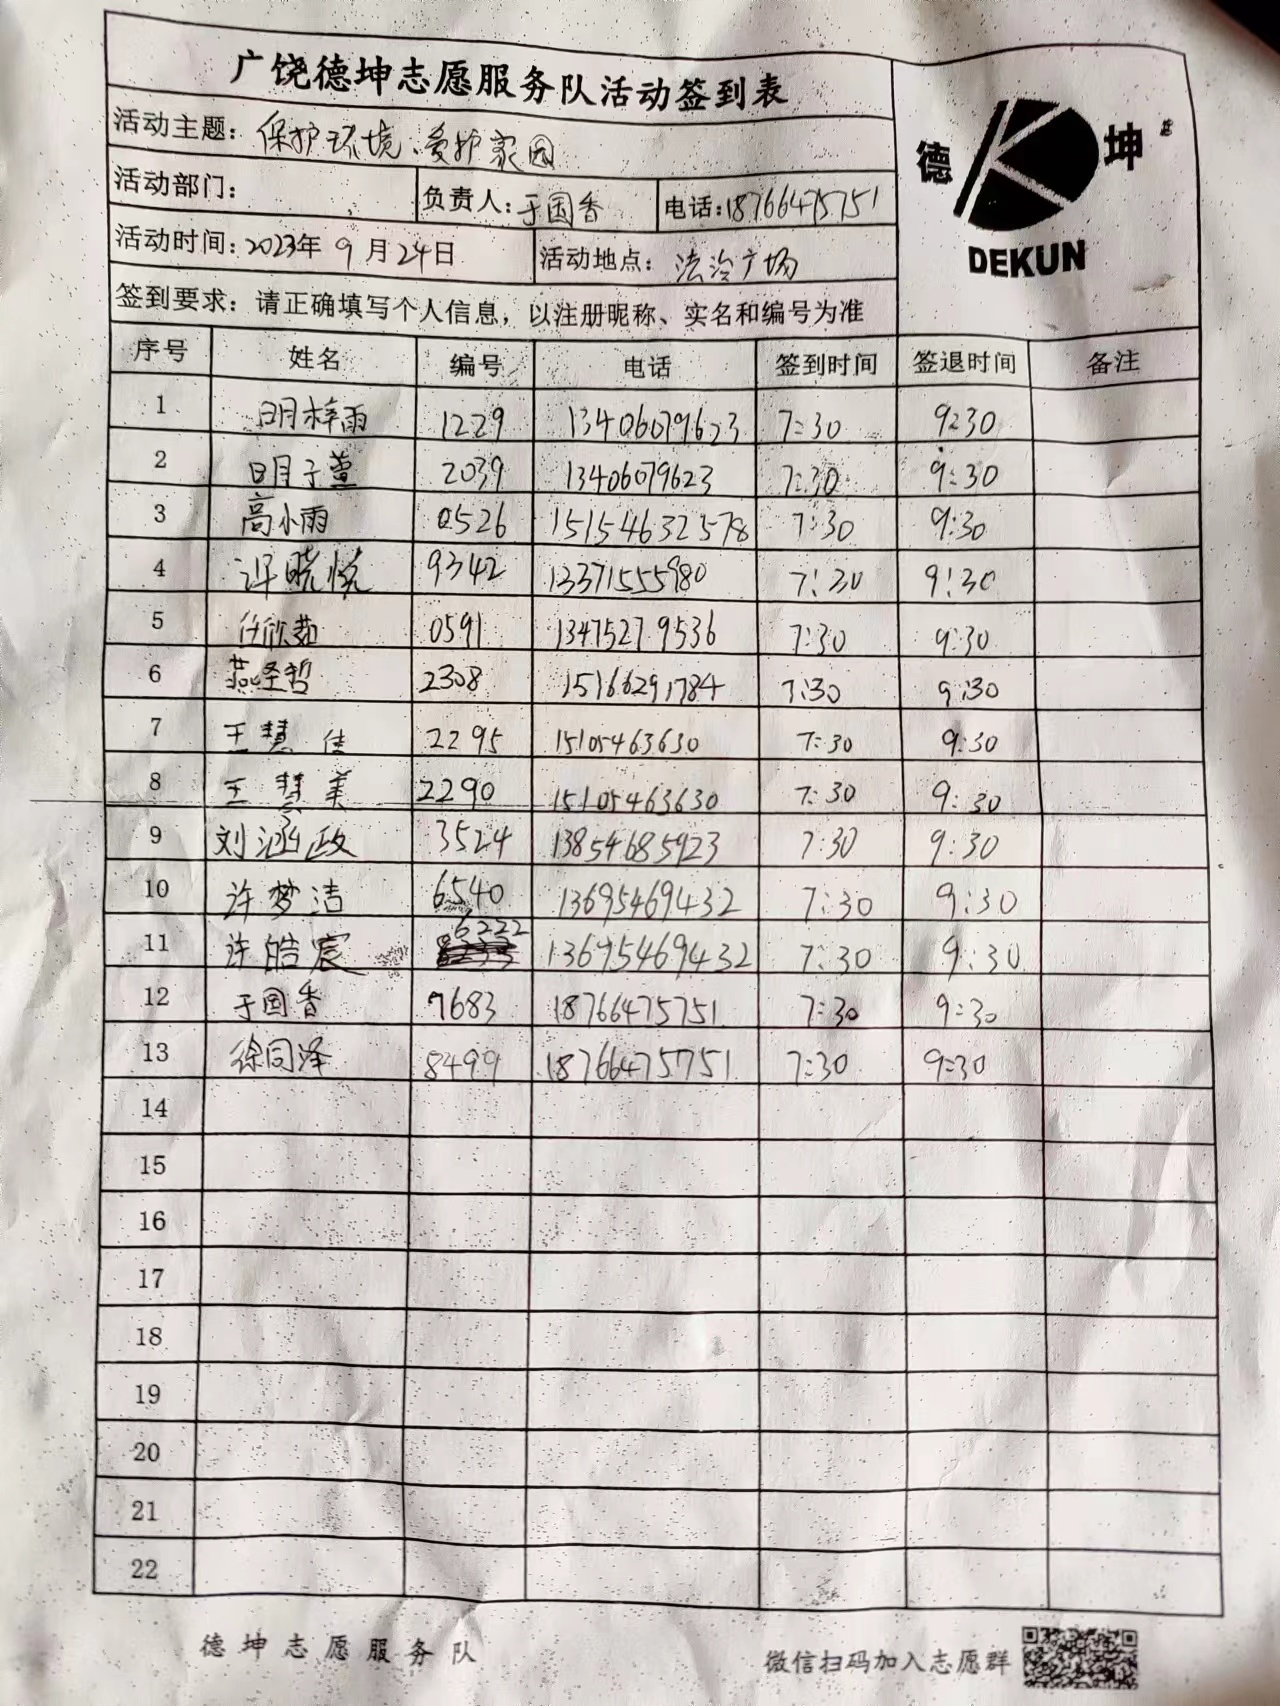 广饶德坤志愿服务队活动签到表
活动主题：保护环境、爱护家园
德 坤
DEKUN
活动部门： 负责人：于国香 电话：18766475751
活动时间：2023年9月24日 活动地点：法治广场
签到要求：请正确填写个人信息，以注册昵称、实名和编号为准
序号 姓名 编号 电话 签到时间 签退时间 备注
1 明梓雨 1229 13406079623 7:30 9:30
2 明子萱 2039 13406079623 7:30 9:30
3 高小雨 0526 15154632578 7:30 9:30
4 许晓悦 9342 13371555980 7:30 9:30
5 任欣茹 0591 13475279536 7:30 9:30
6 燕圣哲 2308 15166291784 7:30 9:30
7 王慧佳 2295 15105463630 7:30 9:30
8 王慧美 2290 15105463630 7:30 9:30
9 刘涵政 3524 13854685923 7:30 9:30
10 许梦洁 6540 13695469432 7:30 9:30
11 许皓宸 6222 13695469432 7:30 9:30
12 于国香 7683 18766475751 7:30 9:30
13 徐同泽 8499 18766475751 7:30 9:30
14
15
16
17
18
19
20
21
22
德坤志愿服务队 微信扫码加入志愿群